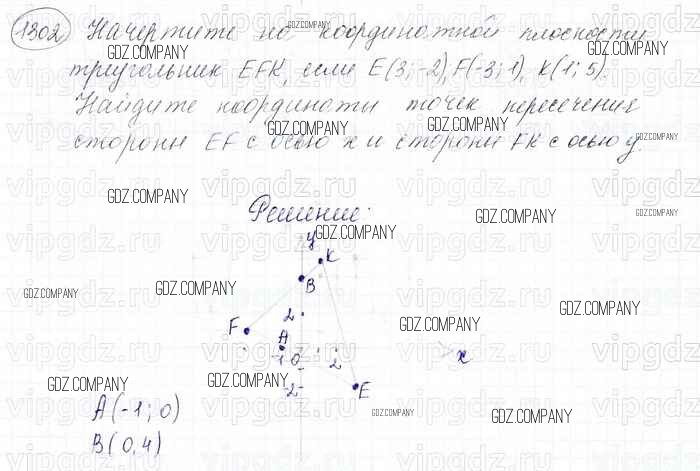 1302 Начертите на координатной плоскости
треугольник EFK, если E(3;-2), F(-3;1), K(1;5).
Найдите координаты точек пересечения
стороны EF с осью x и стороны FK с осью y.
Решение:
y
K
B
2
F
A
-1 0 2
x
-2
E
A(-1;0)
B(0,4)
GDZ.COMPANY
vipgdz.ru